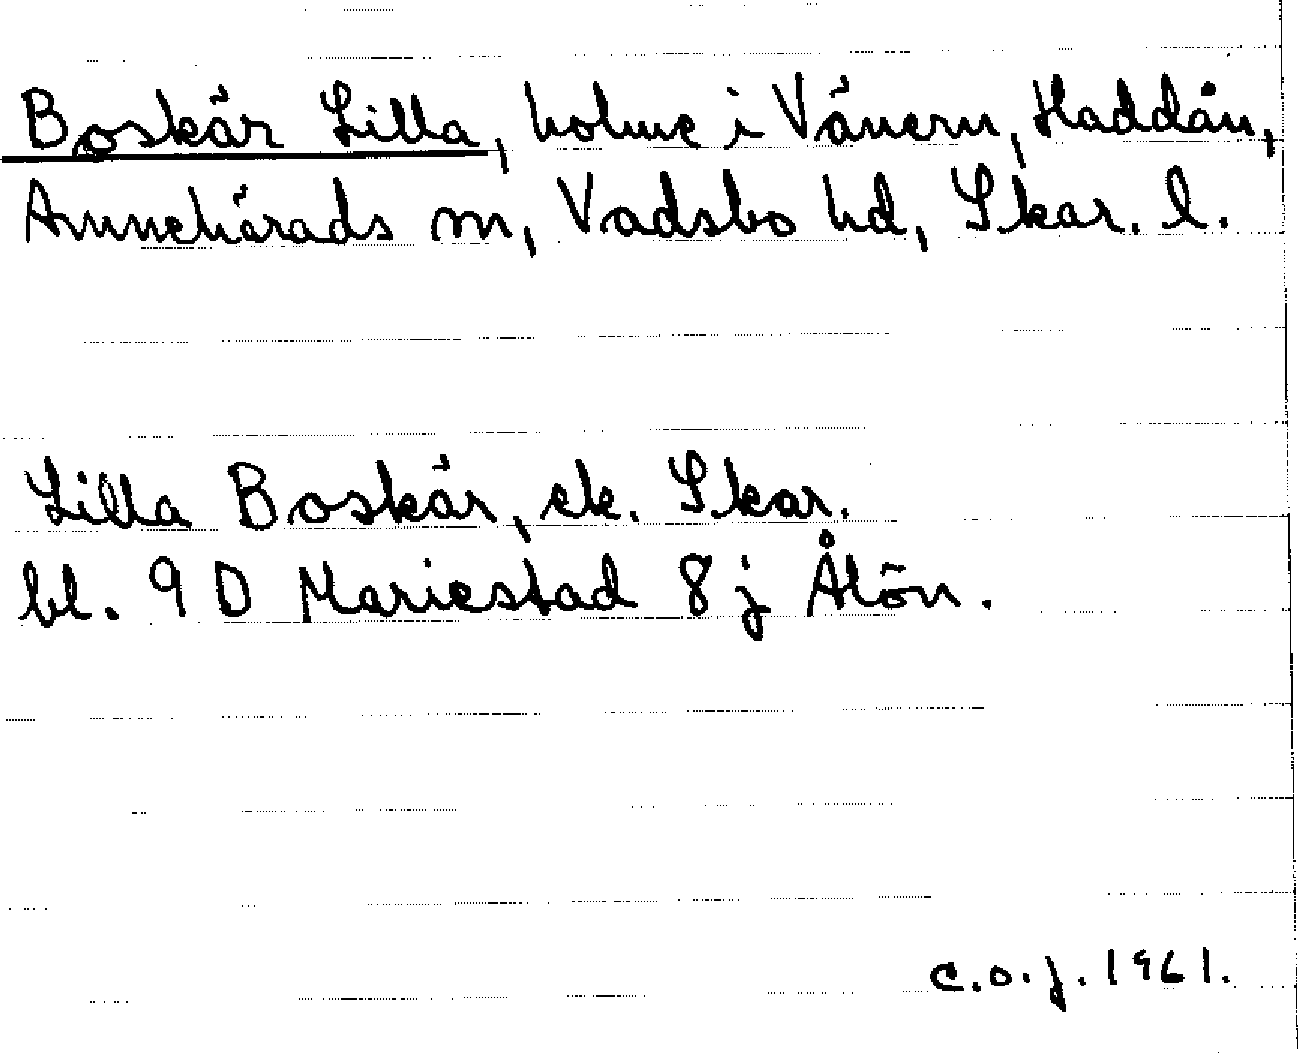 Boskär Lilla, holme i Vänern, Haddån,
Amnehärads sn, Vadsbo hd, Skar. l.
Lilla Boskär, ek. Skar.
bl. 9 D Mariestad 8 j Ålön.
C.O.J. 1961.